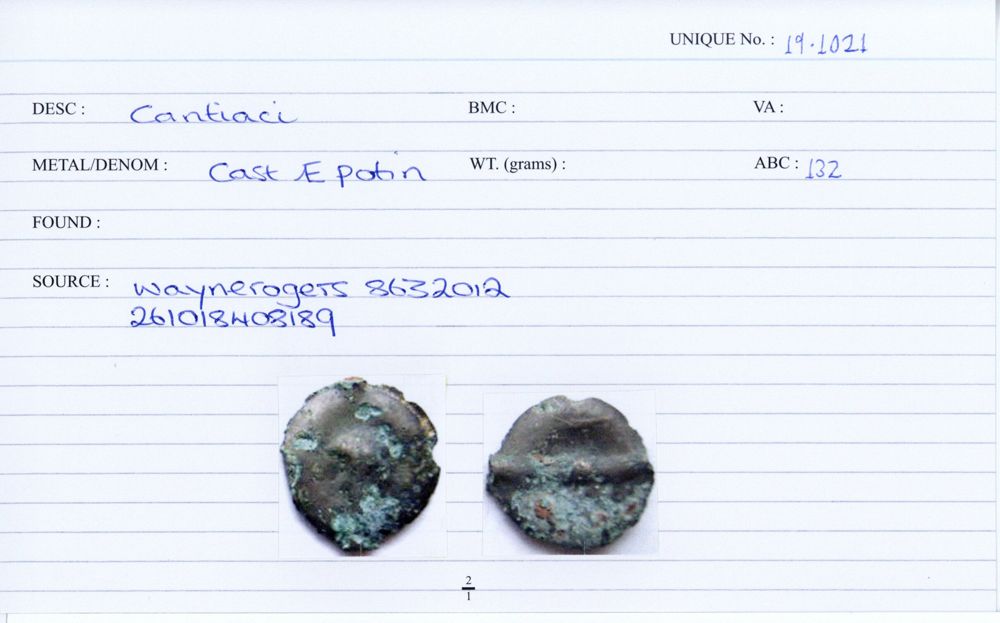 UNIQUE No. : 19.1021
DESC : Cantiaci BMC : VA :
METAL/DENOM : Cast Æ potin WT. (grams) : ABC : 132
FOUND :
SOURCE : waynerogers 8632012
261018408189
2
1